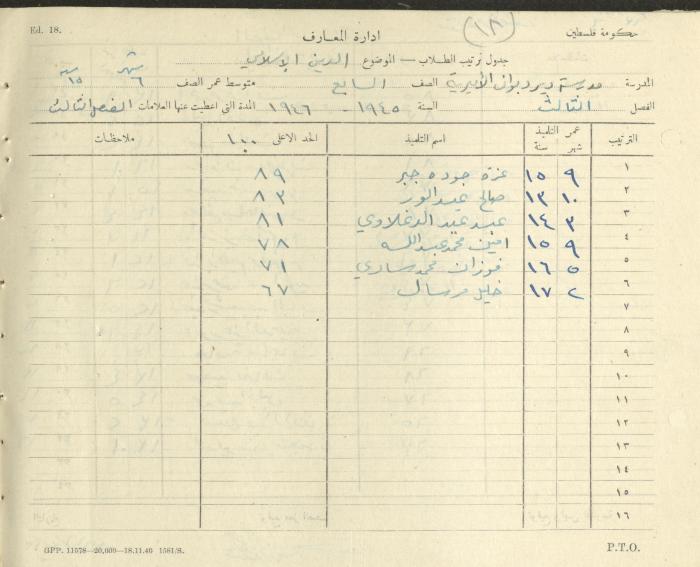 Ed. 18.
(١٨)
حكومة فلسطين
ادارة المعارف
جدول ترتيب الطلاب — الموضوع الدين الإسلامي
المدرسة مدرسة ديردبوان الأميرية الصف السابع متوسط عمر الصف شهر ٦ سنة ١٥
الفصل الثالث السنة ١٩٤٥ - ١٩٤٦ المدة التي اعطيت عنها العلامات الفصل الثالث
الترتيب عمر التلميذ شهر سنة اسم التلميذ الحد الاعلى ١٠٠ ملاحظات
١ ٩ ١٥ عزة جوده جبر ٨٩
٢ ١٠ ١٣ صالح ٨٣
٣ ٣ ١٤ عبد ٨١
٤ ٩ ١٥ امين محمد عبدالله ٧٨
٥ ٥ ١٦ فوزان محمد ساري ٧١
٦ ٢ ١٧ خليل مرسال ٦٧
٧
٨
٩
١٠
١١
١٢
١٣
١٤
١٥
١٦
GPP. 11578—20,000—18.11.40 1561/S.
P.T.O.